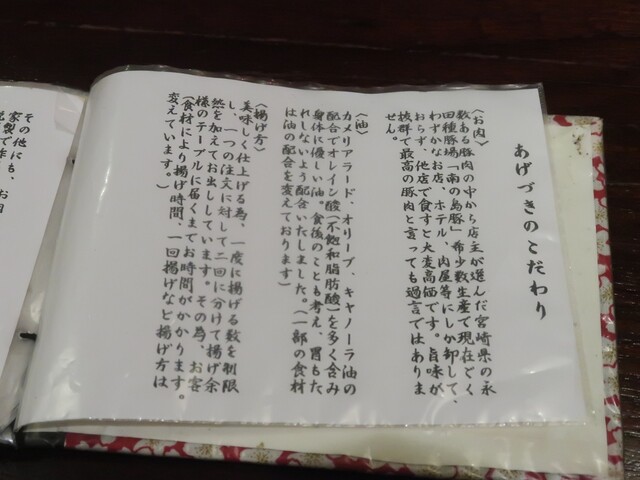 あげづきのこだわり
〈お肉〉
数ある豚肉の中から店主が選んだ宮崎県の永
田種豚場「南の島豚」希少数生産で現在ごく、
わずかなお店、ホテル、肉屋等にしか卸して
おらず、他店で食すと大変高価です。旨味が
抜群で最高の豚肉と言っても過言ではありま
せん。
〈油〉
カメリアラード、オリーブ、キャノーラ油の
配合でオレイン酸(不飽和脂肪酸)を多く含み
身体に優しい油。食後のことも考え、胃もた
れしないよう配合いたしました。(一部の食材
は油の配合を変えております)
〈揚げ方〉
美味しく仕上げる為、一度に揚げる数を制限
し、一つの注文に対して二回に分けて揚げ余
熱を加えてお出ししています。その為、お客
様のテーブルに届くまでお時間がかかります。
(食材により揚げ時間、一回揚げなど揚げ方は
変えています。)
その他にも、お
家製で作